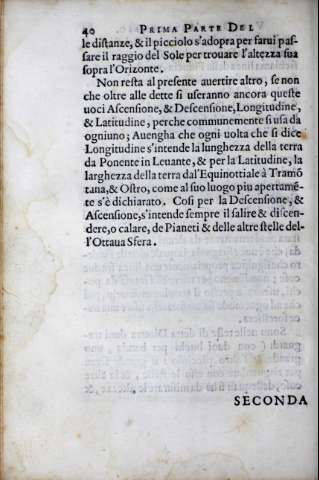 40 PRIMA PARTE DEL
le distanze, & il picciolo s'adopra per farui pas-
sare il raggio del Sole per trouare l'altezza sua
sopra l'Orizonte.
Non resta al presente auertire altro, se non
che oltre alle dette si useranno ancora queste
uoci Ascensione, & Descensione, Longitudine,
& Latitudine, perche communemente si usa da
ogniuno; Auengha che ogni uolta che si dice
Longitudine s'intende la lunghezza della terra
da Ponente in Leuante, & per la Latitudine, la
larghezza della terra dall'Equinottiale à Tramõ
tana, & Ostro, come al suo luogo piu apertamẽ
te s'è dichiarato. Cosi per la Descensione, &
Ascensione, s'intende sempre il salire & discen-
dere, o calare, de Pianeti & delle altre stelle del-
l'Ottaua Sfera.
SECONDA